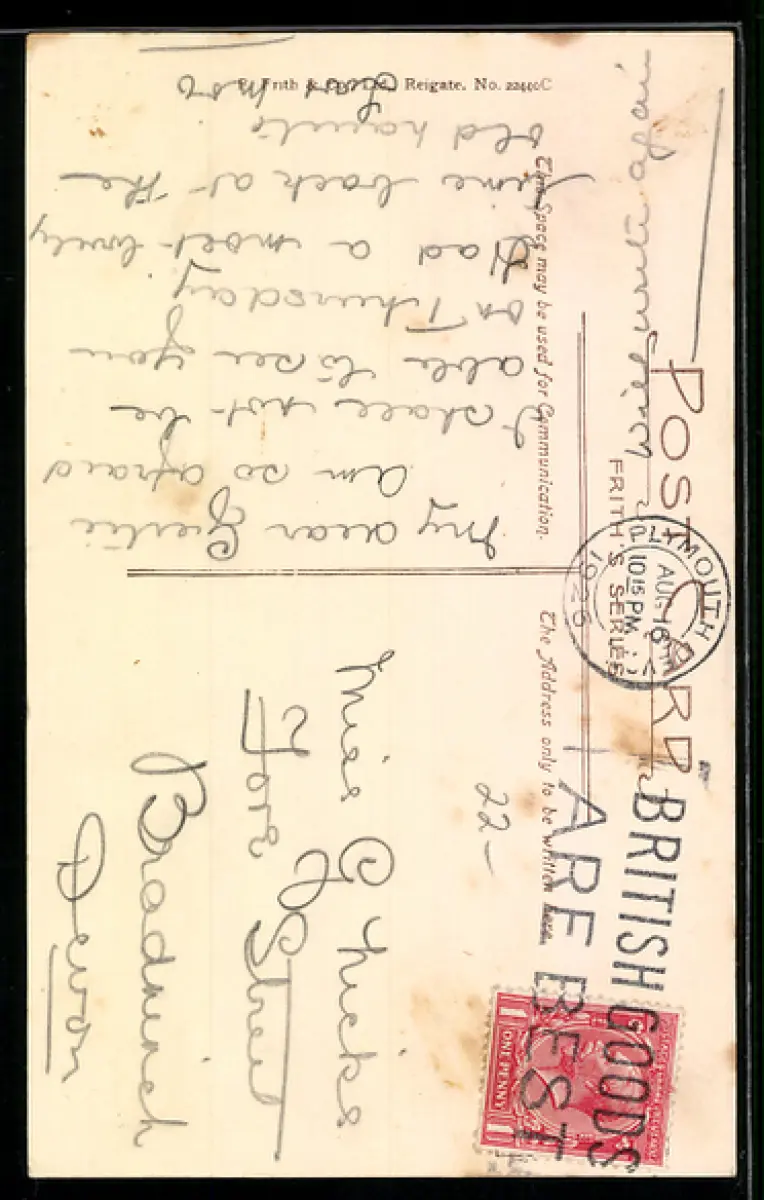 F. Frith & Co., Ltd., Reigate. No. 22440C
POST CARD
FRITH'S SERIES
This Space may be used for Communication.
The Address only to be written here.
PLYMOUTH
10 15 PM
AUG 16
1926
BRITISH GOODS
ARE BEST
ONE PENNY
1 1
22-
My dear Gertie
am so afraid
I shall not be
able to see you
on Thursday
Had a most lovely
time back at the
old haunts
Will write again
Miss G Hicks
Fore Street
Bradninch
Devon